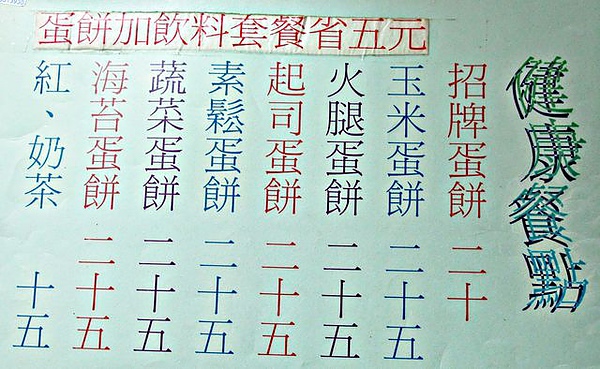 蛋餅加飲料套餐省五元
健康餐點
招牌蛋餅 二十
玉米蛋餅 二十五
火腿蛋餅 二十五
起司蛋餅 二十五
素鬆蛋餅 二十五
蔬菜蛋餅 二十五
海苔蛋餅 二十五
紅、奶茶 十五